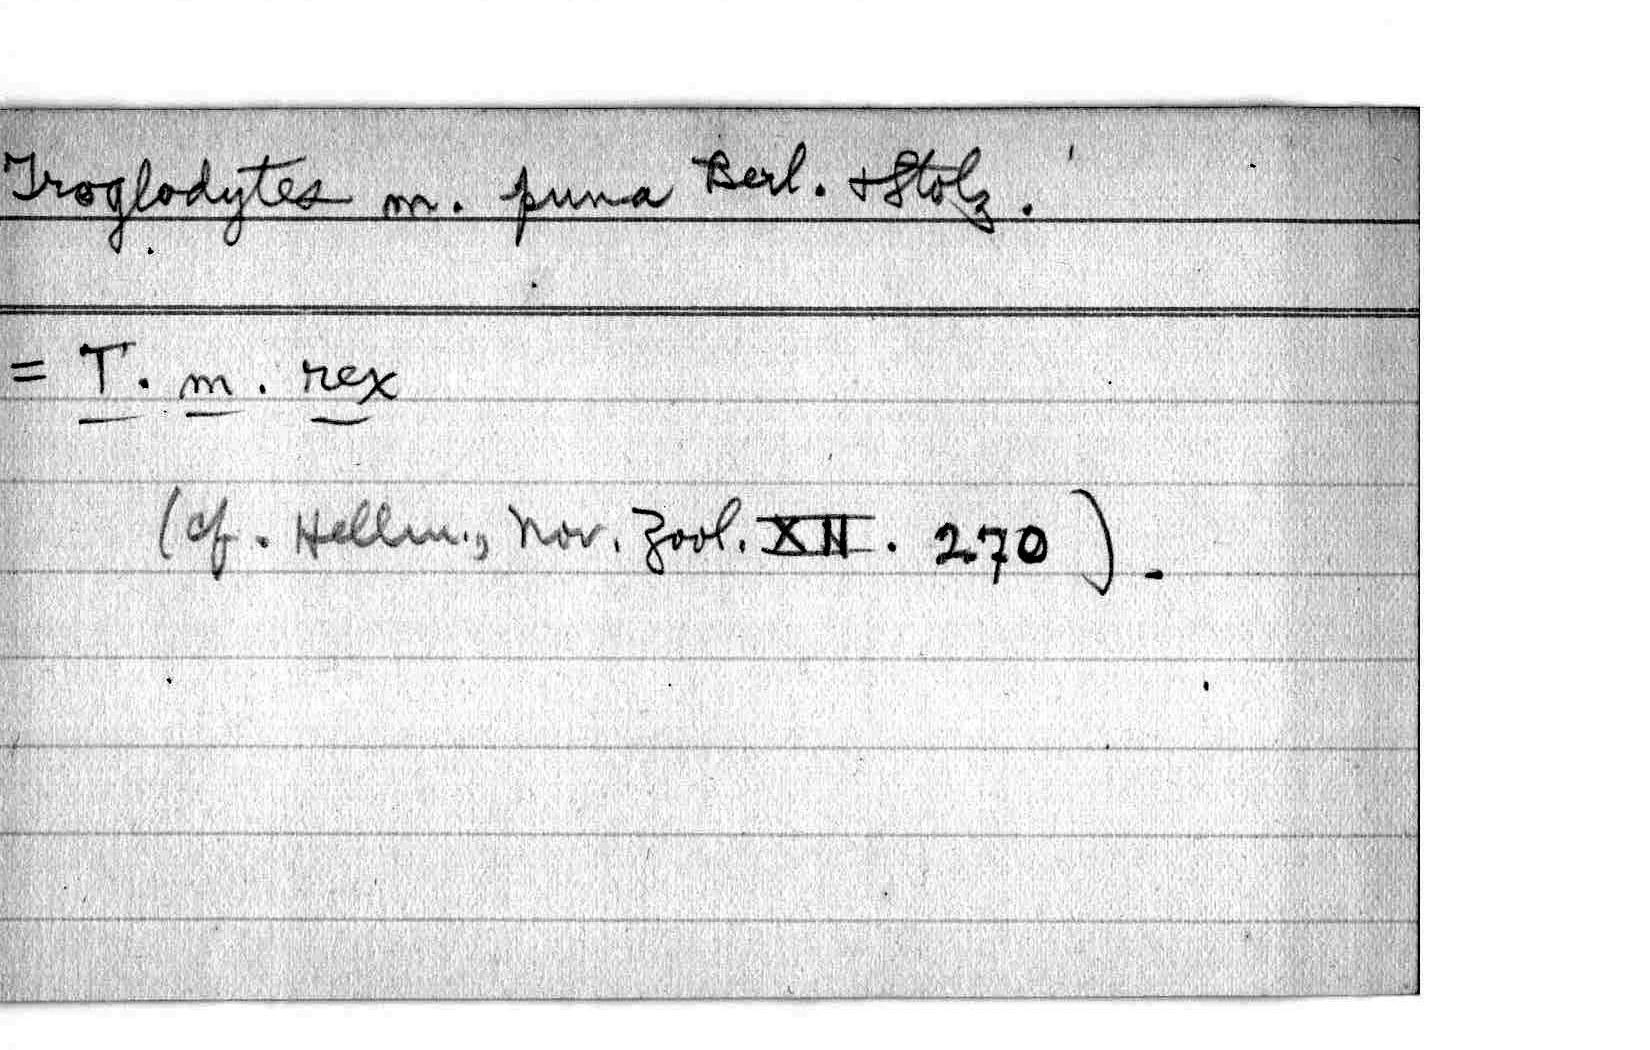 Troglodytes m. puna Berl. + Stolz.
= T. m. rex
(cf. Hellm., Nov. Zool. XII. 270).